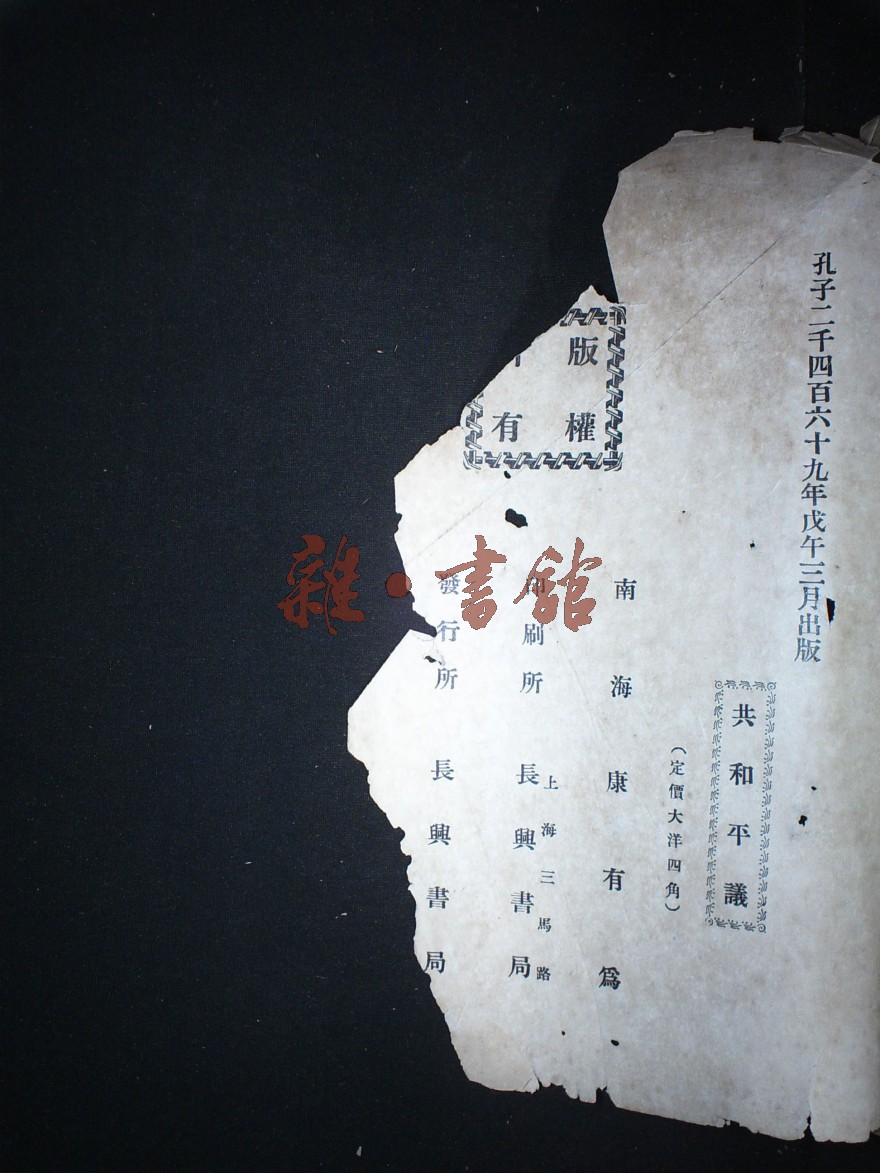 孔子二千四百六十九年戊午三月出版
共和平議
（定價大洋四角）
版權
有
南海康有爲
上海三馬路
印刷所 長興書局
發行所 長興書局
雜·書館